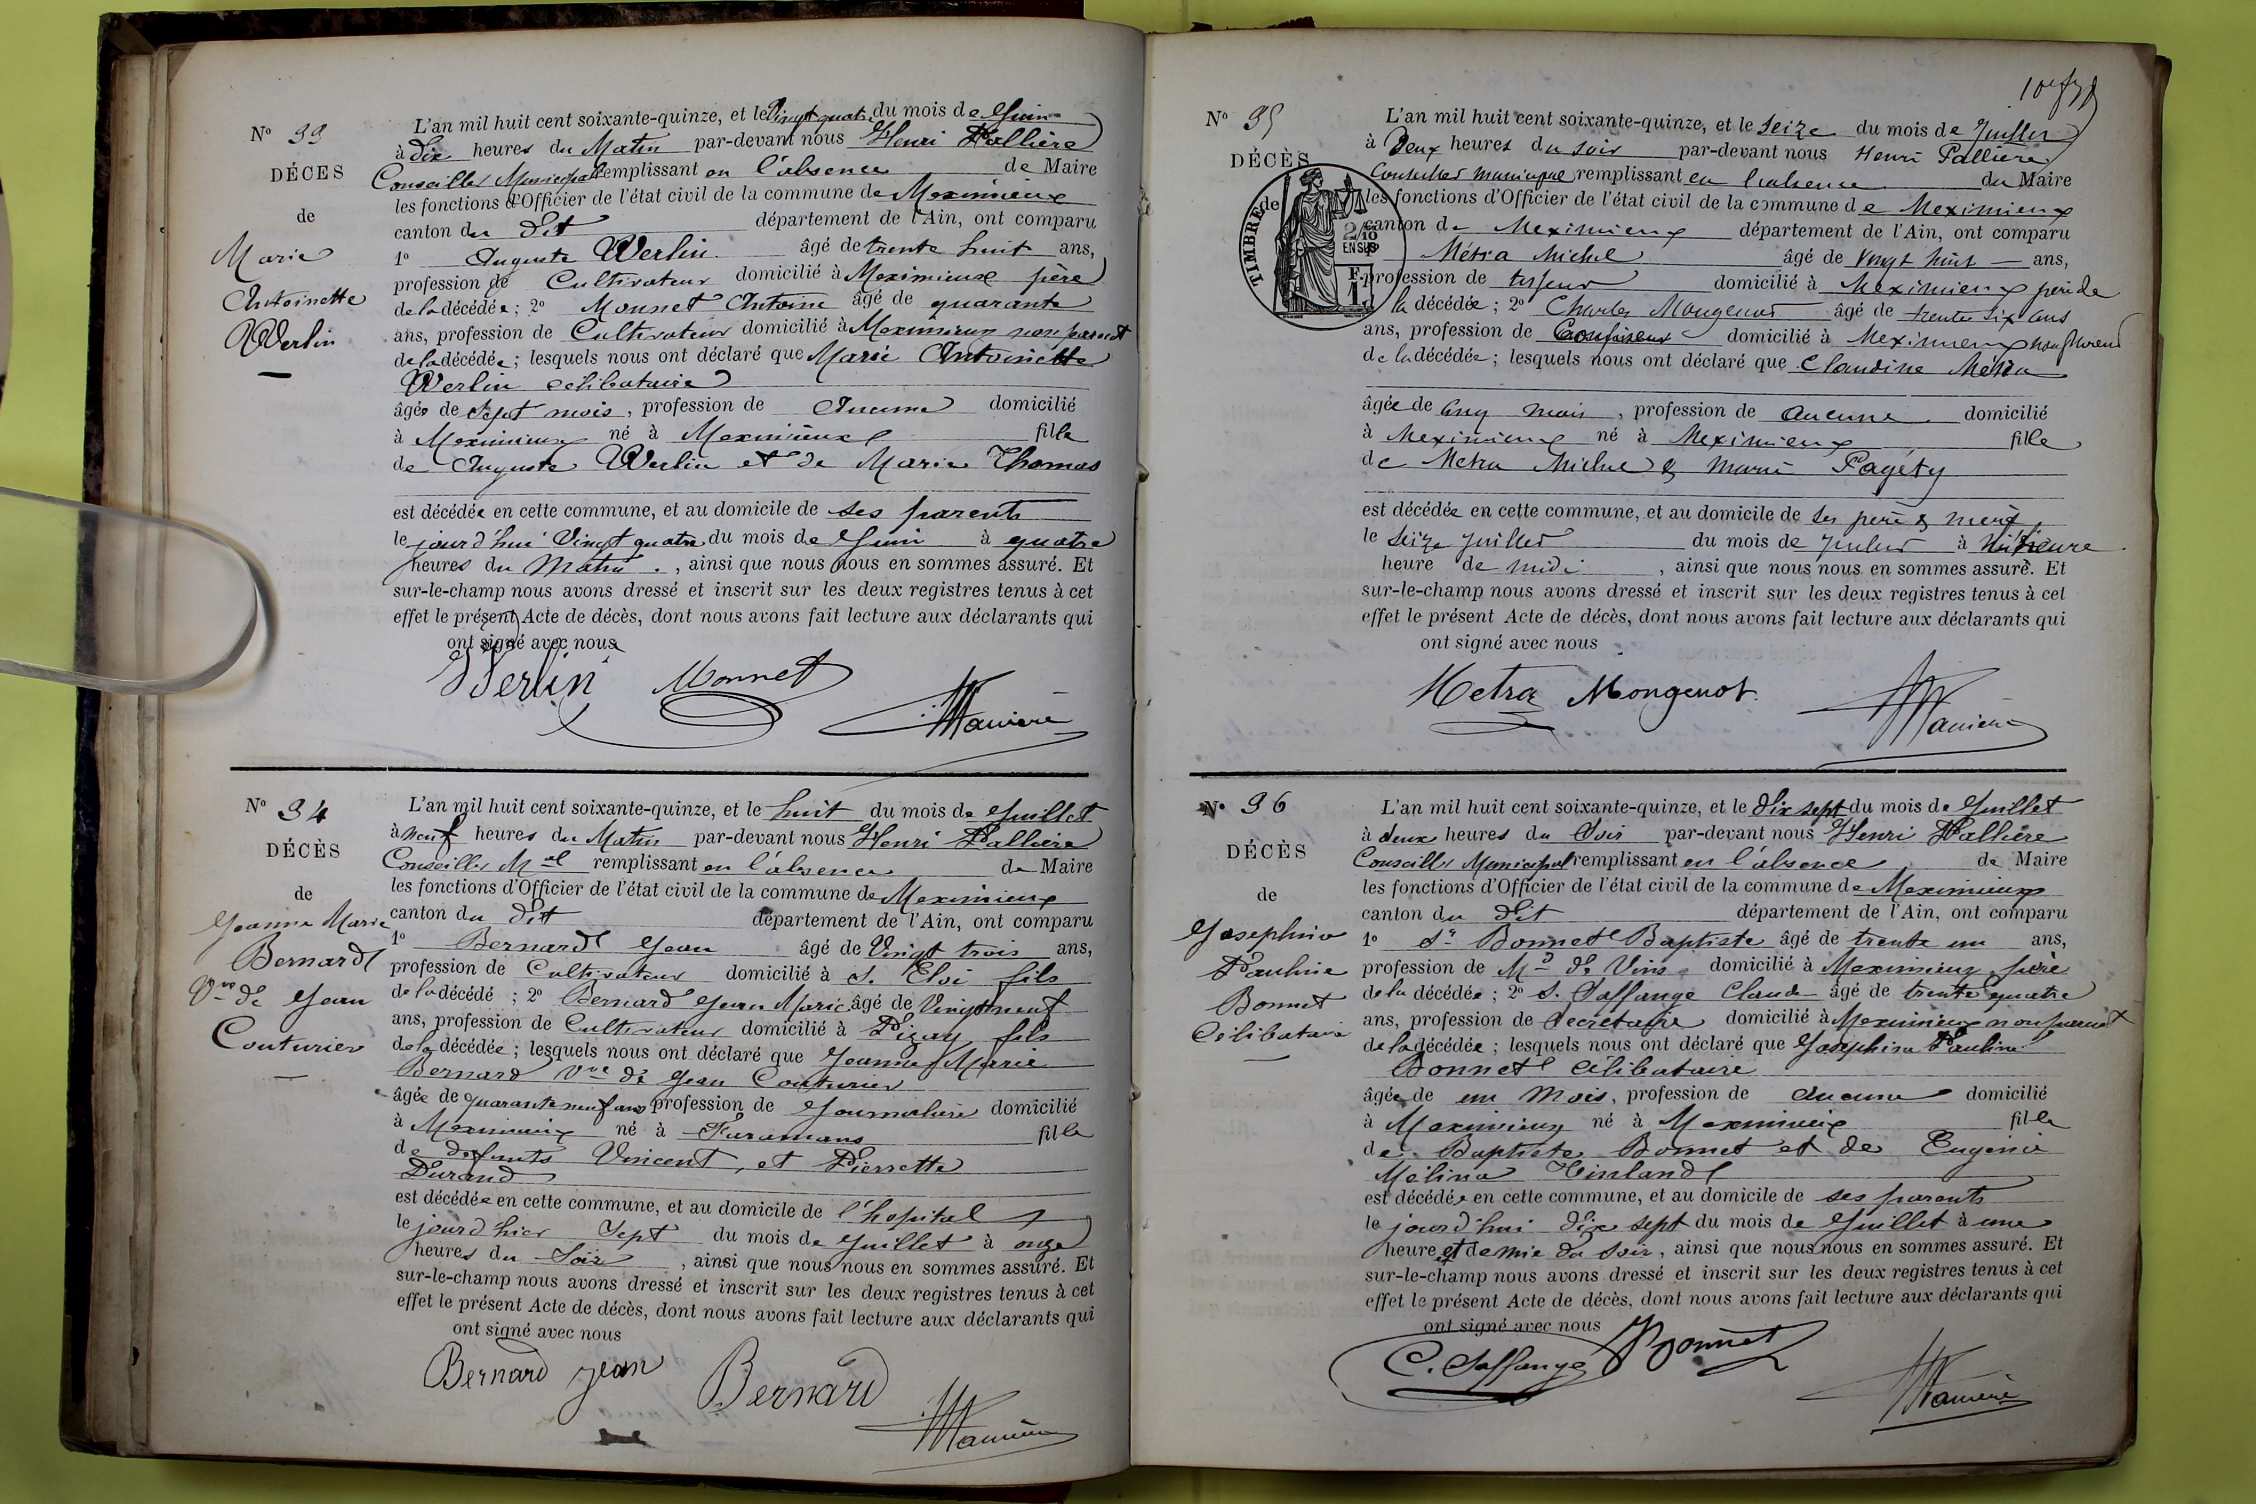 N° 33
DÉCÈS
de
Marie
Antoinette
Werlin
L'an mil huit cent soixante-quinze, et le Vingt quatre du mois de Juin
à dix heures du Matin par-devant nous Henri Pallière
Conseiller Municipal remplissant en l'absence de Maire
les fonctions d'Officier de l'état civil de la commune de Meximieux
canton du dit département de l'Ain, ont comparu
1° Auguste Werlin âgé de trente huit ans,
profession de Cultivateur domicilié à Meximieux père
de la décédée ; 2° Monnet Antoine âgé de quarante
ans, profession de Cultivateur domicilié à Meximieux non parent
de la décédée ; lesquels nous ont déclaré que Marie Antoinette
Werlin célibataire
âgée de Sept mois, profession de Aucune domicilié
à Meximieux né à Meximieux fille
de Auguste Werlin et de Marie Thomas
est décédée en cette commune, et au domicile de ses parents
le jourd'hui Vingt quatre du mois de Juin à quatre
heures du Matin, ainsi que nous nous en sommes assuré. Et
sur-le-champ nous avons dressé et inscrit sur les deux registres tenus à cet
effet le présent Acte de décès, dont nous avons fait lecture aux déclarants qui
ont signé avec nous
Werlin Monnet
N° 34
DÉCÈS
de
Jeanne Marie
Bernard
Vve de Jean
Couturier
L'an mil huit cent soixante-quinze, et le huit du mois de Juillet
à neuf heures du Matin par-devant nous Henri Pallière
Conseiller Mal remplissant en l'absence de Maire
les fonctions d'Officier de l'état civil de la commune de Meximieux
canton du dit département de l'Ain, ont comparu
1° Bernard Jean âgé de Vingt trois ans,
profession de Cultivateur domicilié à S. Eloi fils
de la décédé ; 2° Bernard Jean Marie âgé de Vingt neuf
ans, profession de Cultivateur domicilié à Pizay fils
de la décédée ; lesquels nous ont déclaré que Jeanne Marie
Bernard Vve de Jean Couturier
âgée de quarante neuf ans profession de Journalière domicilié
à Meximieux né à Faramans fille
de défunts Vincent, et Pierrette
Durand
est décédée en cette commune, et au domicile de l'hopital
le jourd'hier Sept du mois de Juillet à onze
heures du Soir, ainsi que nous nous en sommes assuré. Et
sur-le-champ nous avons dressé et inscrit sur les deux registres tenus à cet
effet le présent Acte de décès, dont nous avons fait lecture aux déclarants qui
ont signé avec nous
Bernard jean Bernard
N° 35
DÉCÈS
de
TIMBRE
2/10
EN SUS
F.
1
L'an mil huit cent soixante-quinze, et le Seize du mois de Juillet
à Deux heures du soir par-devant nous Henri Pallière
Conseiller municipal remplissant en l'absence du Maire
les fonctions d'Officier de l'état civil de la commune de Meximieux
canton de Meximieux département de l'Ain, ont comparu
Métra Michel âgé de Vingt huit ans,
profession de domicilié à Meximieux père de
la décédée ; 2° Charles Mougenot âgé de trente Six ans
ans, profession de domicilié à Meximieux non parent
de la décédée ; lesquels nous ont déclaré que Claudine Métra
âgée de Cinq mois, profession de aucune domicilié
à Meximieux né à Meximieux fille
de Metra Michel & Marie Pagéty
est décédée en cette commune, et au domicile de ses père & mère
le Seize Juillet du mois de Juillet à
heure de midi, ainsi que nous nous en sommes assuré. Et
sur-le-champ nous avons dressé et inscrit sur les deux registres tenus à cet
effet le présent Acte de décès, dont nous avons fait lecture aux déclarants qui
ont signé avec nous
Metra Mongenot
N° 36
DÉCÈS
de
Josephine
Pauline
Bonnet
Célibataire
L'an mil huit cent soixante-quinze, et le dix sept du mois de Juillet
à deux heures du Soir par-devant nous Henri Pallière
Conseiller Municipal remplissant en l'absence de Maire
les fonctions d'Officier de l'état civil de la commune de Meximieux
canton du dit département de l'Ain, ont comparu
1° Sr Bonnet Baptiste âgé de trente un ans,
profession de Md de Vins domicilié à Meximieux père
de la décédée ; 2° S. Saffange Claude âgé de trente quatre
ans, profession de Secrétaire domicilié à Meximieux non parent
de la décédée ; lesquels nous ont déclaré que Josephine Pauline
Bonnet célibataire
âgée de un Mois, profession de Aucune domicilié
à Meximieux né à Meximieux fille
de Baptiste Bonnet et de Eugénie
Mélina Tinland
est décédée en cette commune, et au domicile de ses parents
le jourd'hui dix sept du mois de Juillet à une
heure et demie du Soir, ainsi que nous nous en sommes assuré. Et
sur-le-champ nous avons dressé et inscrit sur les deux registres tenus à cet
effet le présent Acte de décès, dont nous avons fait lecture aux déclarants qui
ont signé avec nous
C. Saffange Bonnet